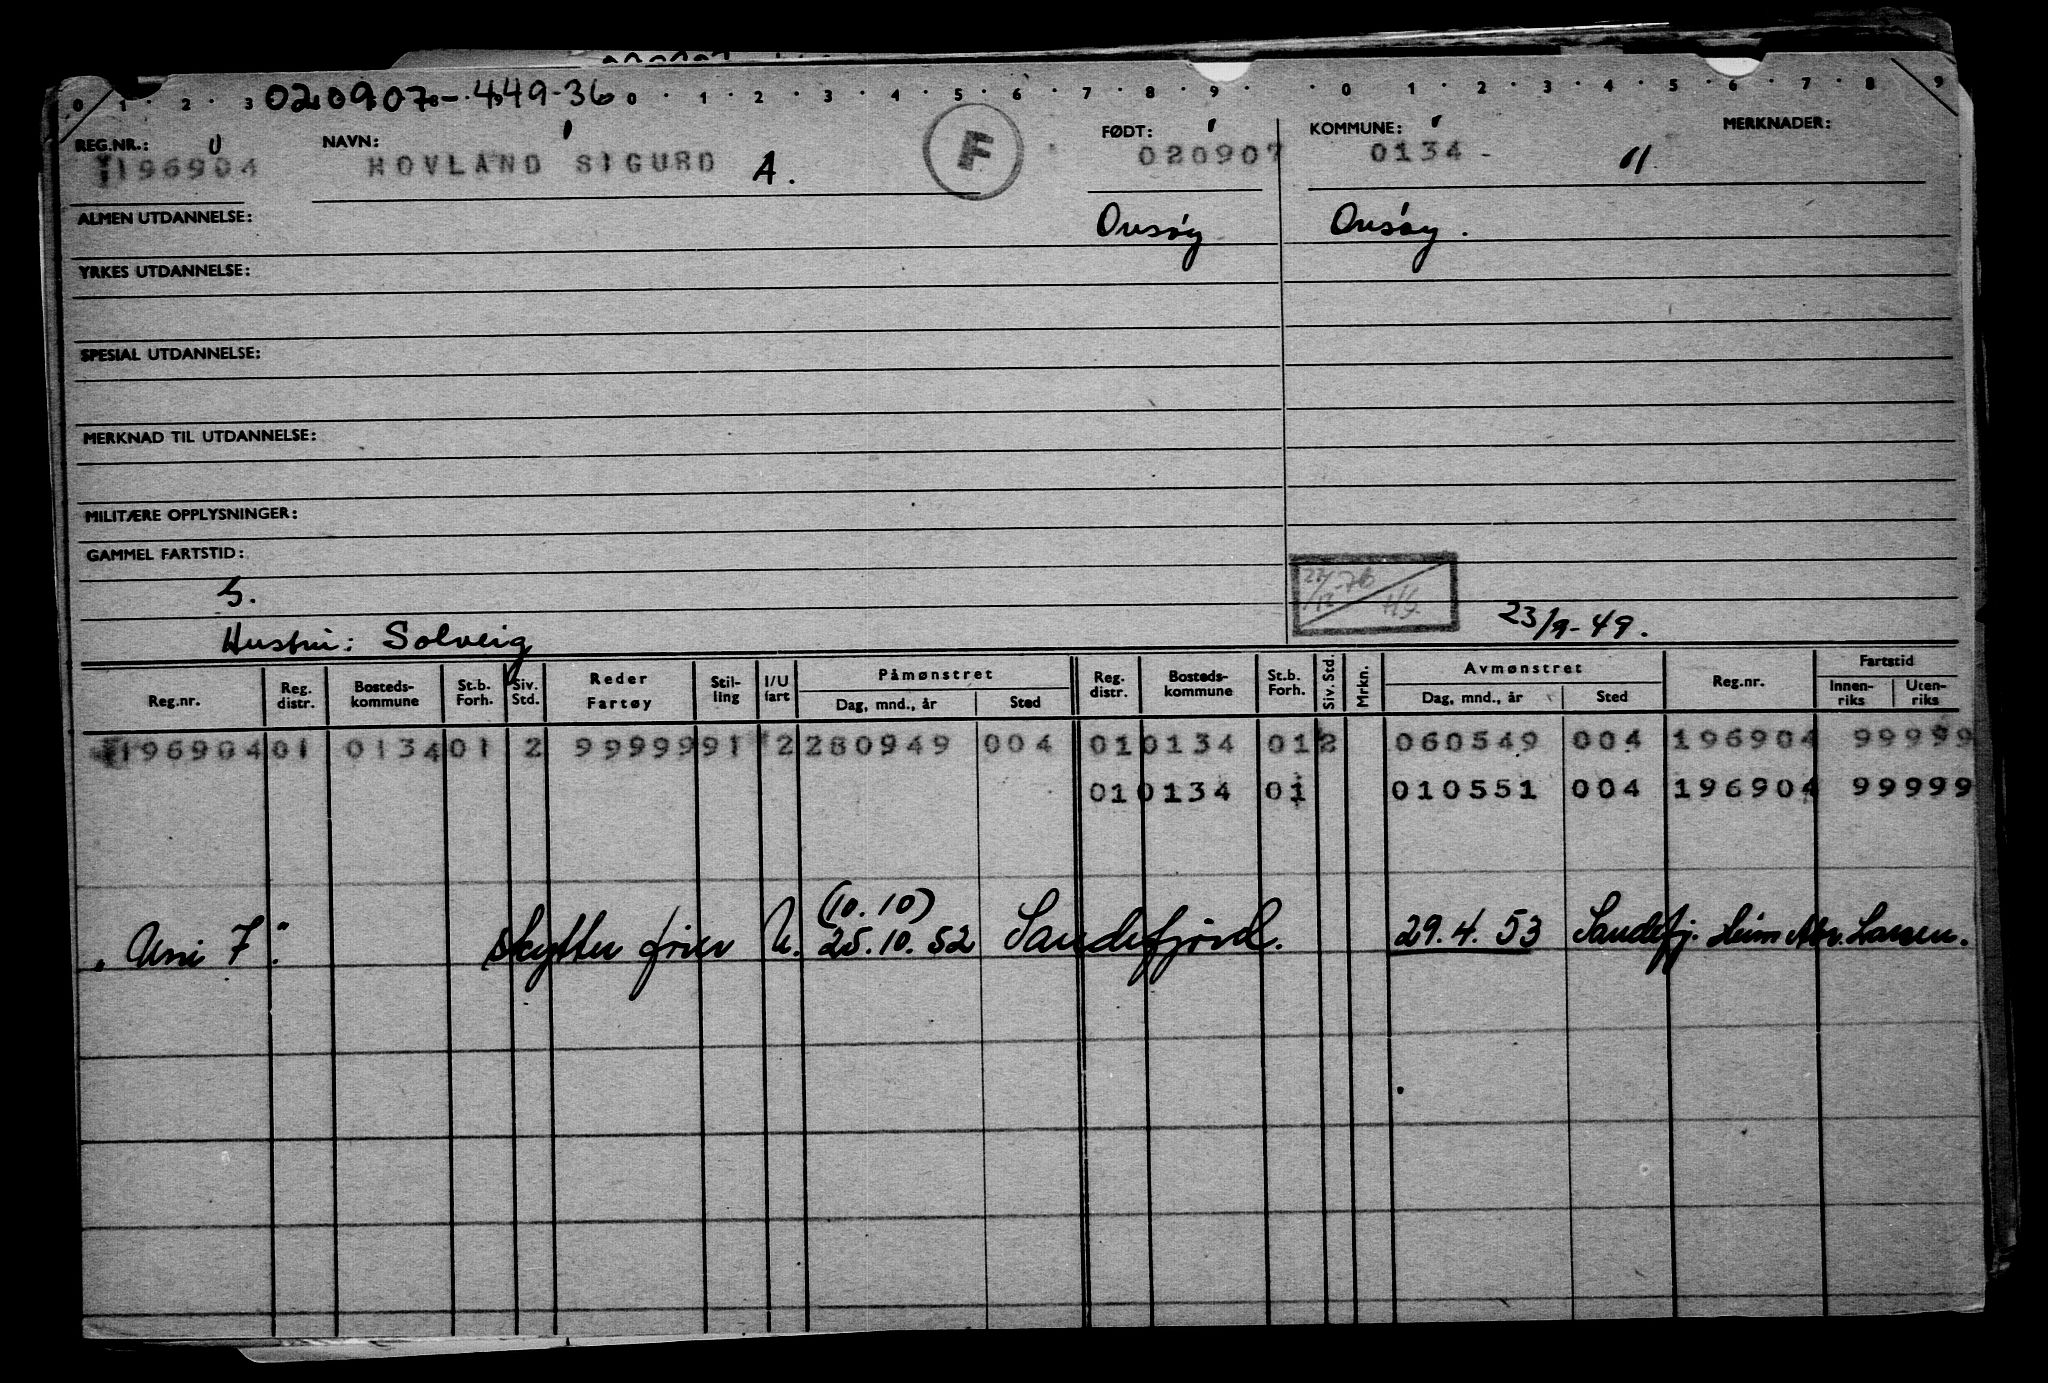 0 1 2 3 020907-449-36 0 1 2 3 4 5 6 7 8 9 0 1 2 3 4 5 6 7 8 9
REG.NR.: NAVN: FØDT: KOMMUNE: MERKNADER:
196904 HOVLAND SIGURD A. F 020907 0134 -
ALMEN UTDANNELSE: Onsøy Onsøy.
YRKES UTDANNELSE:
SPESIAL UTDANNELSE:
MERKNAD TIL UTDANNELSE:
MILITÆRE OPPLYSNINGER:
GAMMEL FARTSTID:
S.
23/9-49.
Hustru: Solveig
Reg.nr. Reg. distr. Bosteds- kommune St.b. Forh. Siv. Std. Reder Fartøy Stil- ling I/U fart Påmønstret Dag, mnd., år Sted Reg. distr. Bosteds- kommune St.b. Forh. Siv. Std. Mrkn. Avmønstret Dag, mnd., år Sted Reg.nr. Fartstid Innen- riks Uten- riks
196904 01 0134 01 2 99999 91 2 280949 004 01 0134 01 2 060549 004 196904 99999
01 0134 01 010551 004 196904 99999
(10.10)
"Uni 7" skytter U. 25.10.52 Sandefjord. 29.4.53 Sandefj. Larsen.